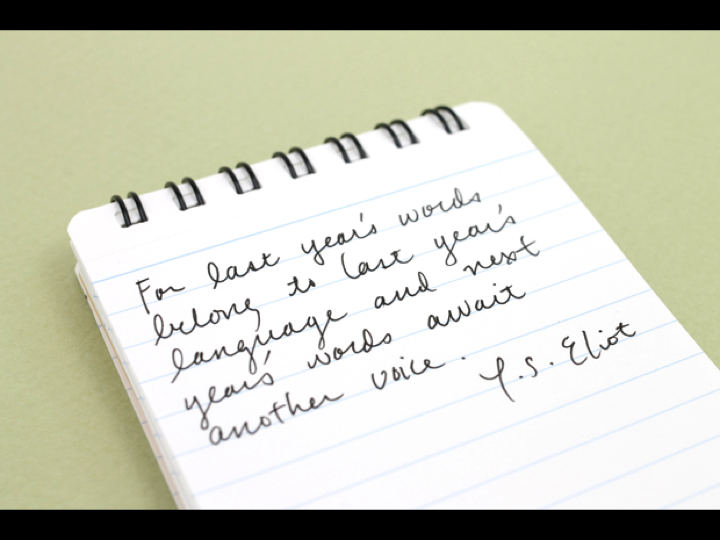 For last year's words
belong to last year's
language and next
year's words await
another voice.
T.S. Eliot